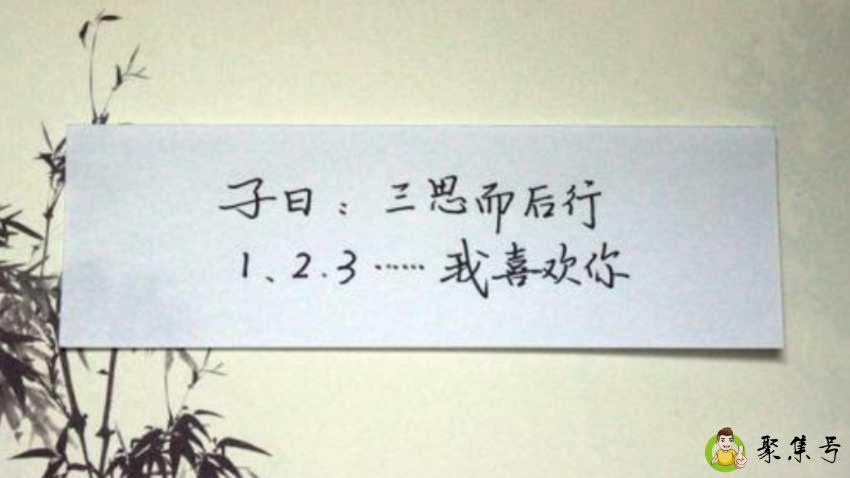 子曰：三思而后行
1、2.3……我喜欢你
聚集号